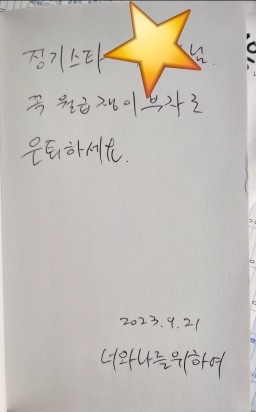 정기스타 님.
꼭 월급쟁이 부자로
은퇴하세요.
2023. 9. 21
너와나를위하여